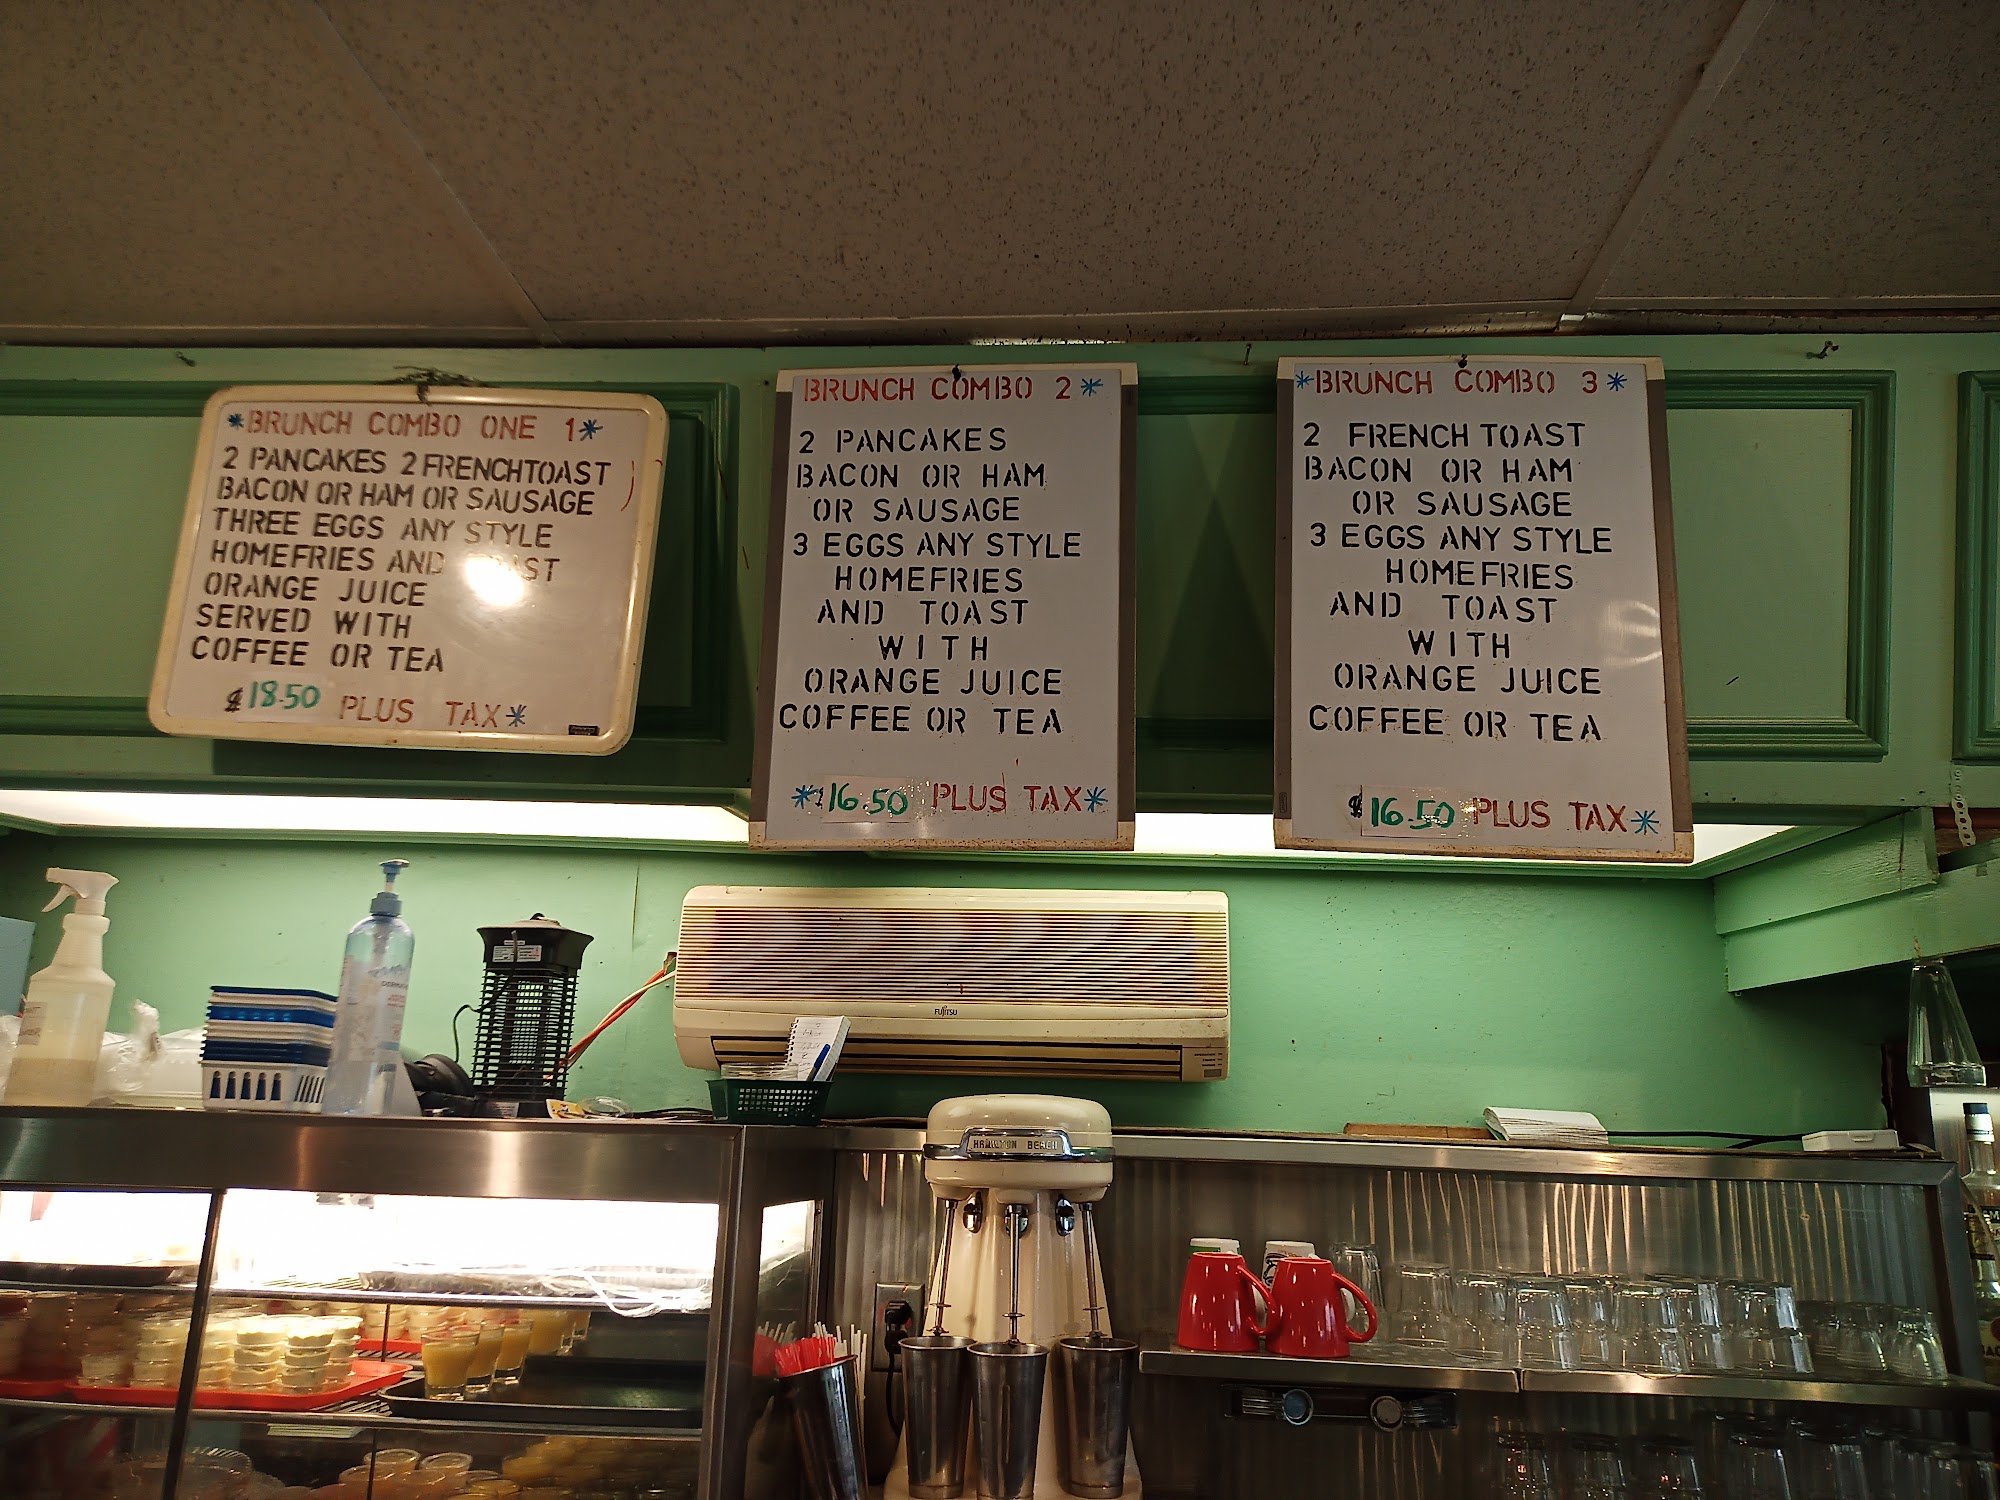 *BRUNCH COMBO ONE 1*
2 PANCAKES 2 FRENCHTOAST
BACON OR HAM OR SAUSAGE
THREE EGGS ANY STYLE
HOMEFRIES AND TOAST
ORANGE JUICE
SERVED WITH
COFFEE OR TEA
$18.50 PLUS TAX*
BRUNCH COMBO 2*
2 PANCAKES
BACON OR HAM
OR SAUSAGE
3 EGGS ANY STYLE
HOMEFRIES
AND TOAST
WITH
ORANGE JUICE
COFFEE OR TEA
*$16.50 PLUS TAX*
*BRUNCH COMBO 3*
2 FRENCH TOAST
BACON OR HAM
OR SAUSAGE
3 EGGS ANY STYLE
HOMEFRIES
AND TOAST
WITH
ORANGE JUICE
COFFEE OR TEA
$16.50 PLUS TAX*
FUJITSU
HAMILTON BEACH